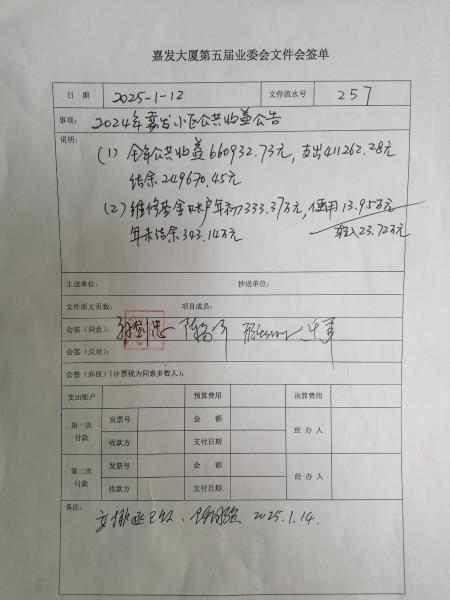 嘉发大厦第五届业委会文件会签单
日 期 2025-1-12 文件流水号 257
事项: 2024年嘉发小区公共收益公告
说明:
(1) 全年公共收益660932.73元，支出411262.28元
结余249670.45元
(2) 维修基金账户年初333.37万元，使用13.95万元
年末结余343.14万元 转入23.72万元
主送单位: 抄送单位:
文件原文页数: 项目成员:
会签（同意）:
会签（反对）:
会签（弃权）(计票视为同意多数人):
支出账户 预算费用 决算费用
第一次付款 发票号 金 额 经 办 人
收款方 支付日期
第二次付款 发票号 金 额 经 办 人
收款方 支付日期
备注:
2025.1.14.